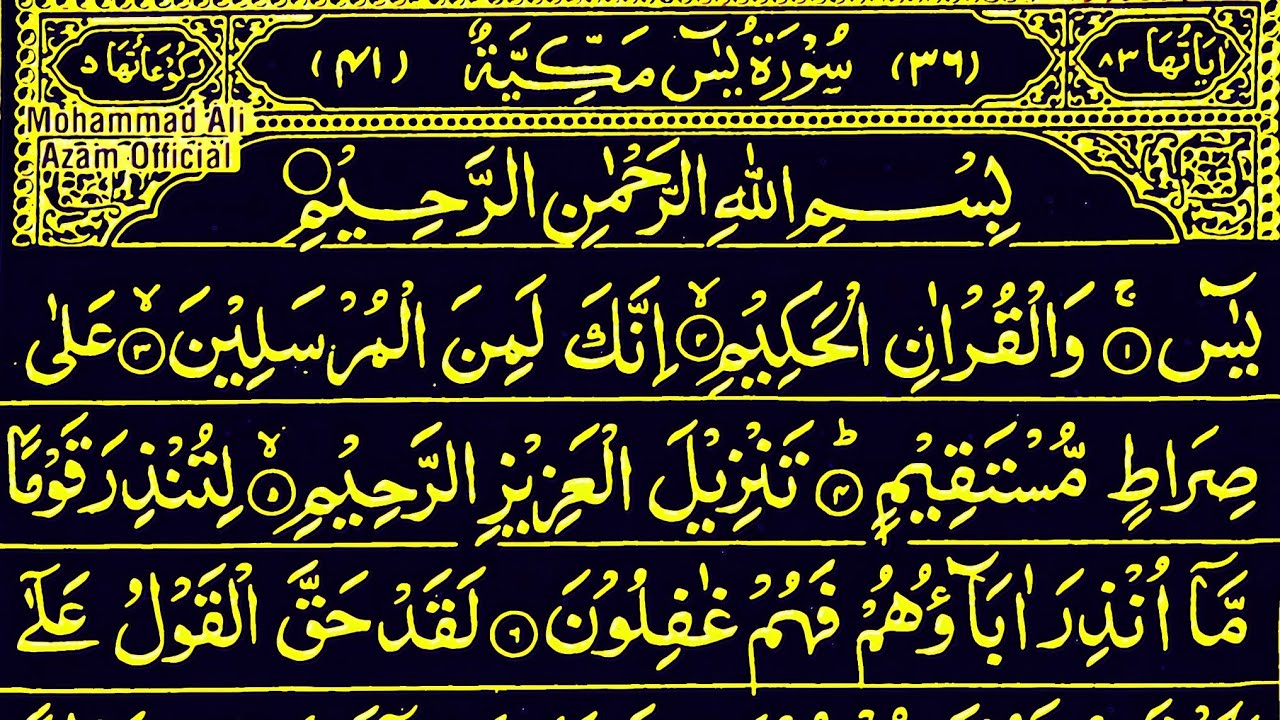 اٰيَاتُهَا ٨٣ (٣٦) سُوْرَةُ يٰسٓ مَكِّيَّةٌ (٤١) رُكُوْعَاتُهَا ٥
Mohammad Ali
Azam Official
بِسْمِ اللهِ الرَّحْمٰنِ الرَّحِيْمِ
يٰسٓ ۚ ﴿١﴾ وَالْقُرْاٰنِ الْحَكِيْمِ ۙ ﴿٢﴾ اِنَّكَ لَمِنَ الْمُرْسَلِيْنَ ۙ ﴿٣﴾ عَلٰى
صِرَاطٍ مُّسْتَقِيْمٍ ؕ ﴿٤﴾ تَنْزِيْلَ الْعَزِيْزِ الرَّحِيْمِ ۙ ﴿٥﴾ لِتُنْذِرَ قَوْمًا
مَّاۤ اُنْذِرَ اٰبَآؤُهُمْ فَهُمْ غٰفِلُوْنَ ﴿٦﴾ لَقَدْ حَقَّ الْقَوْلُ عَلٰۤى